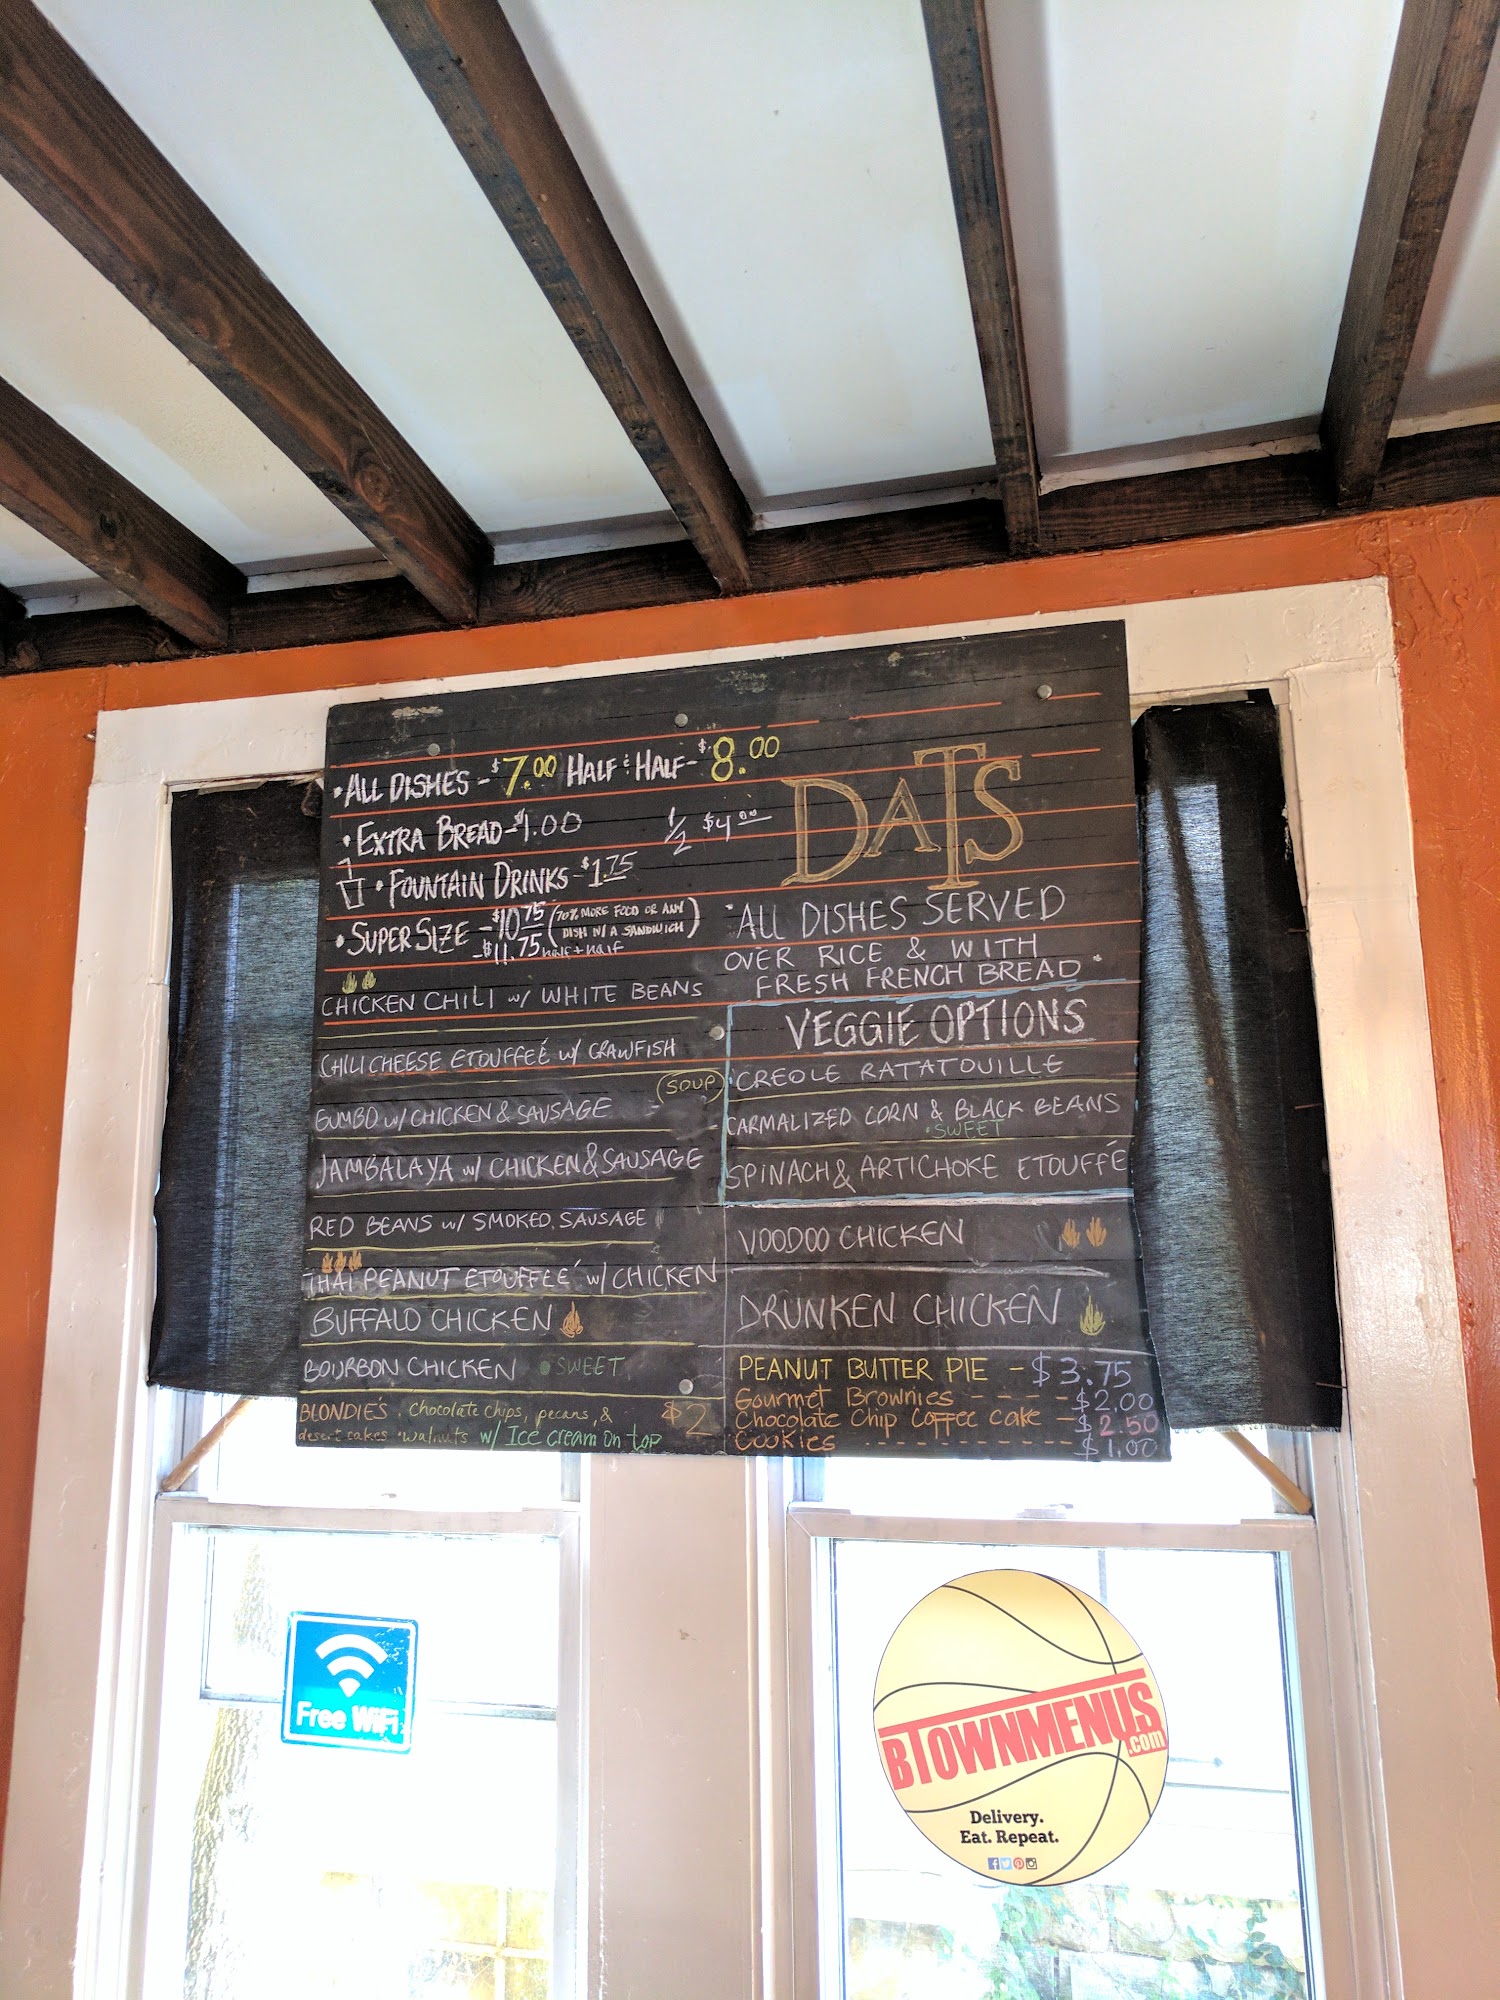 • ALL DISHES - $7.00 HALF & HALF - $8.00
• EXTRA BREAD - $1.00 1/2 $4.00
• FOUNTAIN DRINKS - $1.75
• SUPER SIZE - $10.75 (70% MORE FOOD OR ANY
DISH W/ A SANDWICH)
- $11.75 half + half
CHICKEN CHILI w/ WHITE BEANS
CHILI CHEESE ETOUFFEÉ w/ CRAWFISH
SOUP
GUMBO w/ CHICKEN & SAUSAGE -
JAMBALAYA w/ CHICKEN & SAUSAGE
RED BEANS w/ SMOKED SAUSAGE
THAI PEANUT ETOUFFEÉ w/ CHICKEN
BUFFALO CHICKEN
BOURBON CHICKEN • SWEET
BLONDIE'S . chocolate chips, pecans, & $2
desert cakes • walnuts w/ Ice cream on top
DATS
"ALL DISHES SERVED
OVER RICE & WITH
FRESH FRENCH BREAD"
VEGGIE OPTIONS
CREOLE RATATOUILLE
CARMALIZED CORN & BLACK BEANS
• SWEET
SPINACH & ARTICHOKE ETOUFFÉ
VOODOO CHICKEN
DRUNKEN CHICKEN
PEANUT BUTTER PIE - $3.75
Gourmet Brownies - - - - $2.00
Chocolate Chip Coffee Cake - $2.50
Cookies - - - - - - - - - $1.00
Free WiFi
BTOWNMENUS
.com
Delivery.
Eat. Repeat.